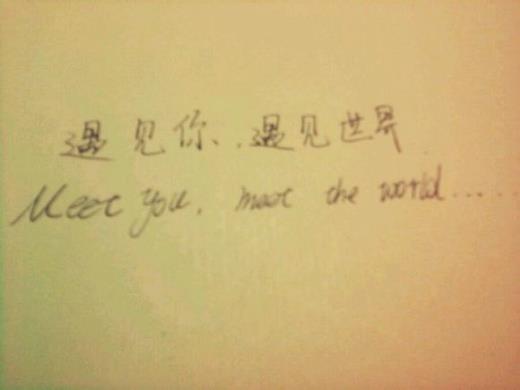 遇见你、遇见世界
Meet you, meet the world.....